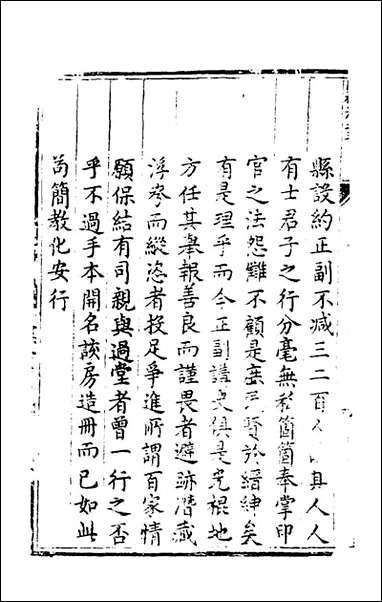 縣設約正副不减三二百人真人人
有士君子之行分毫無私箇箇奉掌印
官之法怨讎不顧是庶民賢於縉紳矣
有是理乎而今正副講史俱是光棍地
方任其舉報善良而謹畏者避跡潛藏
浮夸而縱恣者投足爭進所謂百家情
願保結有司親與過堂者曾一行之否
乎不過手本開名該房造冊而已如此
苟簡教化安行